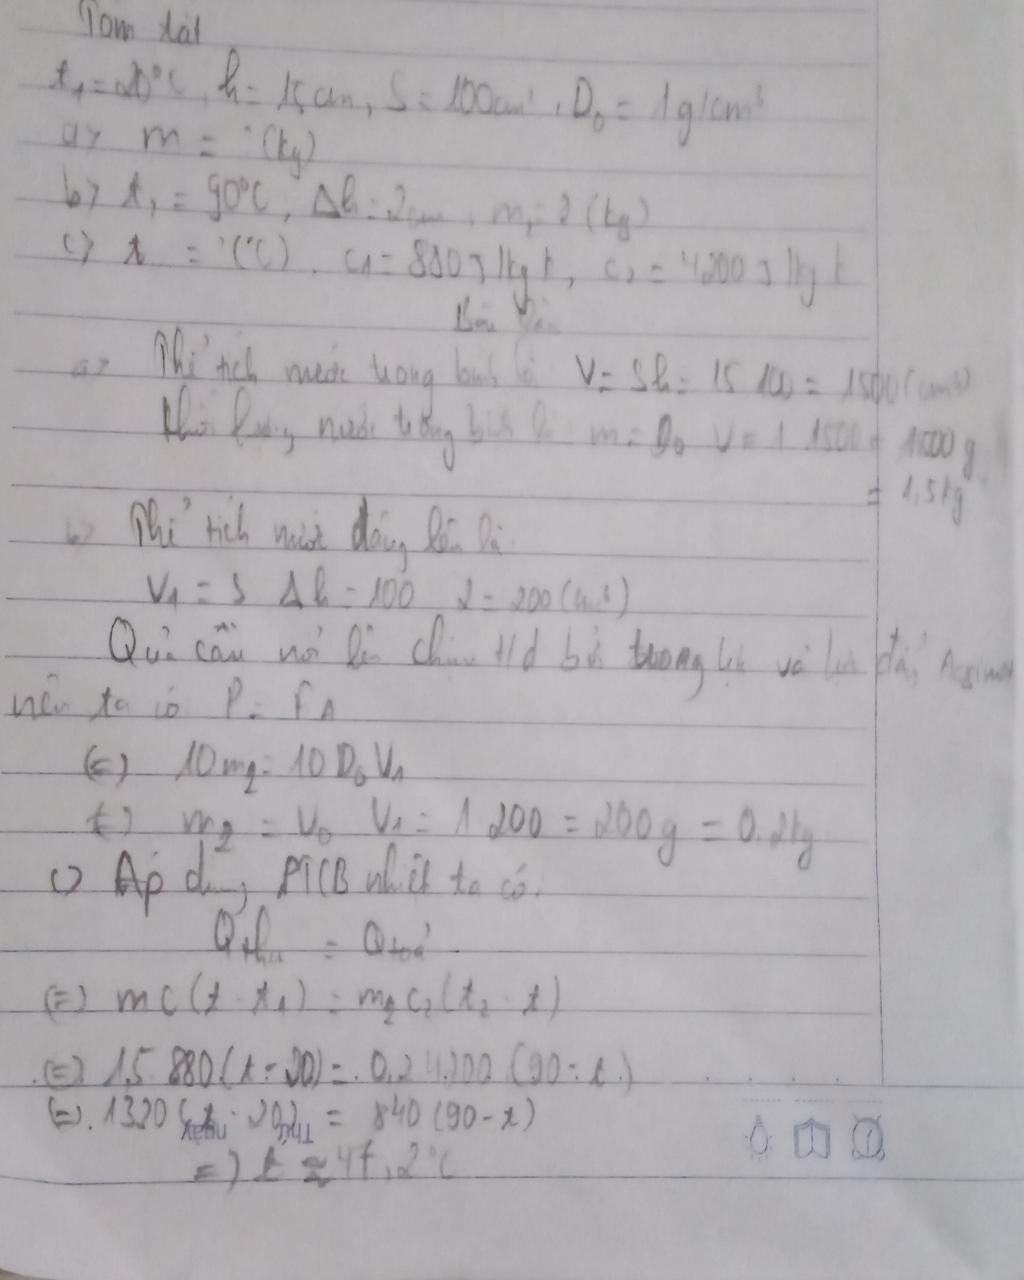 Tóm tắt
t₁ = 20°C, h = 15cm, S = 100cm², D₀ = 1g/cm³
a) m = ? (kg)
b) t₂ = 90°C, Δh = 2cm, m₂ = ? (kg)
c) t = ? (°C), c₁ = 880J/kg k, c₂ = 4200J/kg k
Bài làm
a) Thể tích nước trong bình là V = Sh = 15 100 = 1500 (cm³)
Khối lượng nước trong bình là m = D₀ V = 1 1500 = 1500g
= 1,5kg
b) Thể tích nước dâng lên là
V₁ = S Δh = 100 2 = 200 (cm³)
Quả cầu nổi lên chịu t/d bởi trọng lực và lực đẩy
nên ta có P = FA
(=) 10m₂ = 10 D₀ V₁
(=) m₂ = V₀ V₁ = 1 200 = 200g = 0.2kg
c) Áp dụng PTCB nhiệt ta có.
Qthu = Qtoả
(=) mc(t - t₁) = m₂c₂(t₂ - t)
(=) 1,5 880(t - 20) = 0,2 4200 (90 - t)
(=) 1320 (t - 20) = 840 (90 - t)
=) t ≈ 47,2°C